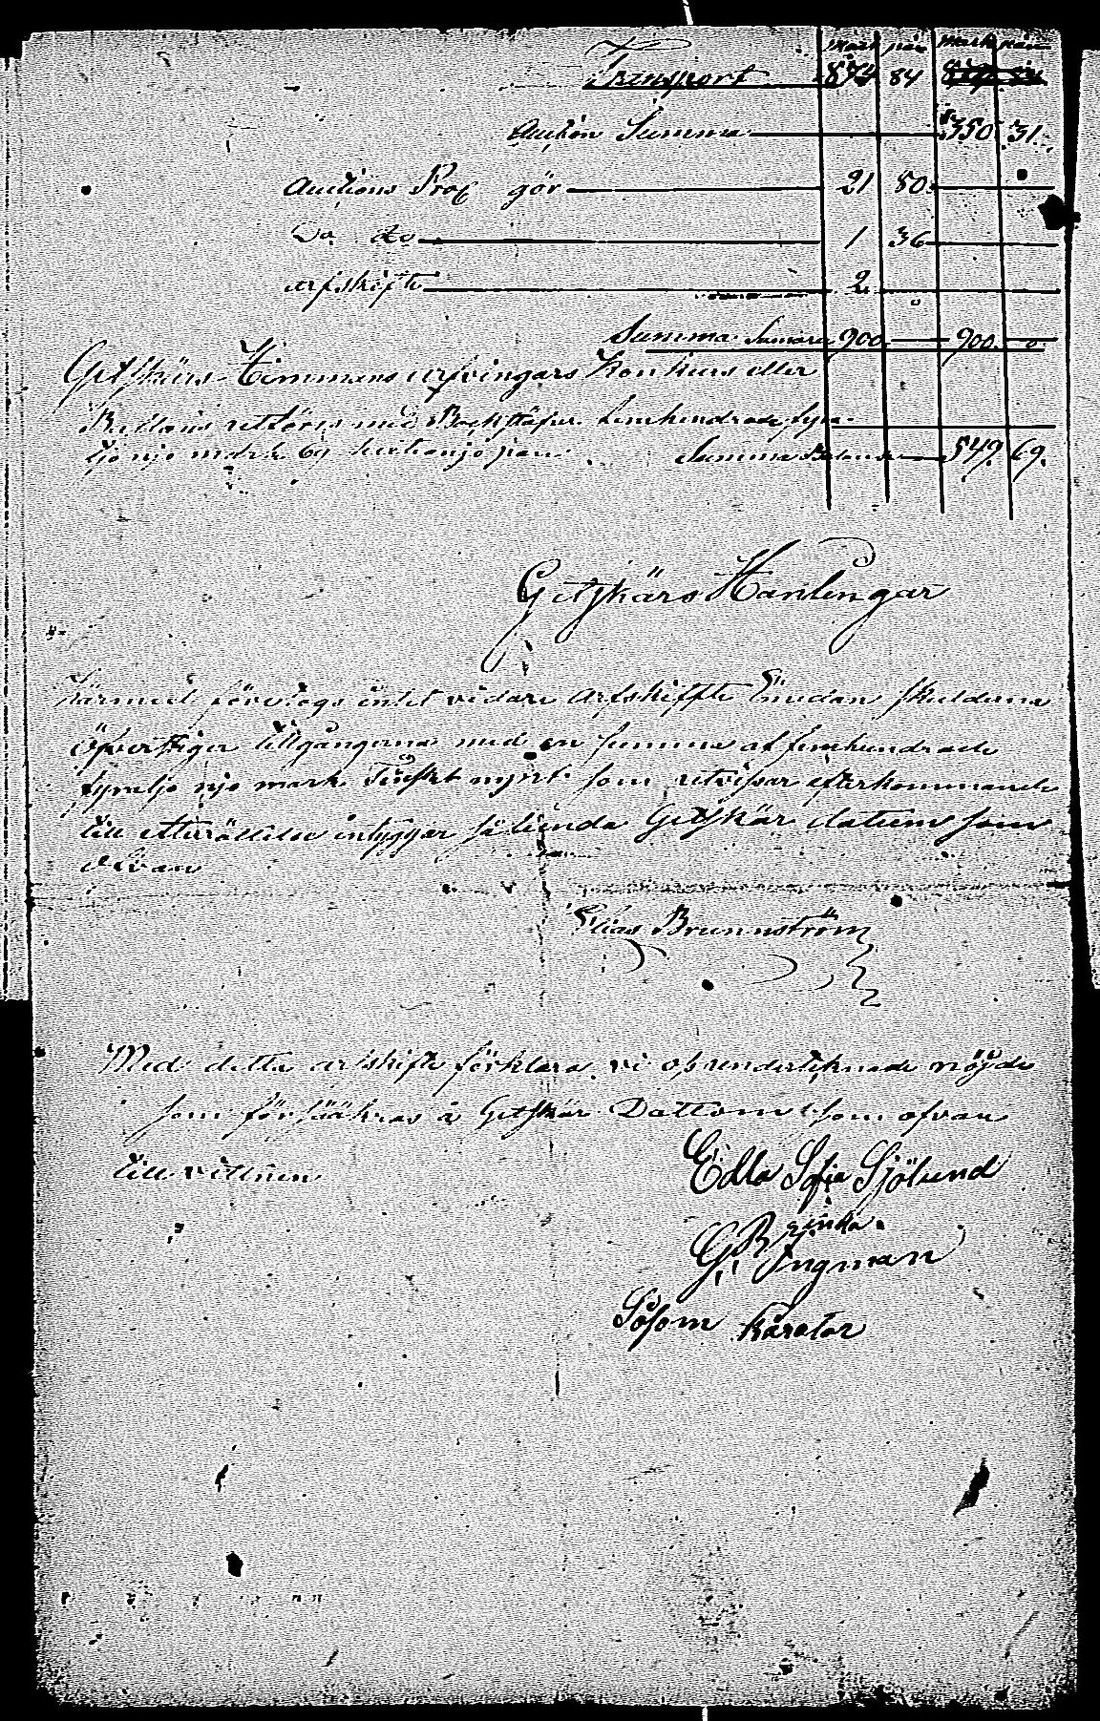 mark pän mark pän
Transport 874 84
Auktion Summa 350. 31.
Auctions Proc gör 21 80.
Do do 1 36
arfskifte 2.
Summa Summarum 900. 900. 0
Getskärs Timmans arfvingars Konkurs eller
utföres med Bockstäfver femhundrade fyra-
tjo njo mark 69 sextionjo pän. Summa Balans 549. 69.
Getskärs Hanlingar
Härmed företogs intet vidare Arfskiffte Emedan skulderna
öfverstiger tillgångarna med en summa af femhundrade
fyratjo njo mark Finskt mynt som utvissar efterkommande
till etterrättelse intyggar Getskär datum som
ofvan
Elias Brunnström
Med detta arfskifte förklara vi osundertecknade nöjde
som försääkras å Getskär Dattom som ofvan
till vittnen
Edla Sofia Sjölund
enka.
G. B. Ingman
Såsom Kurator